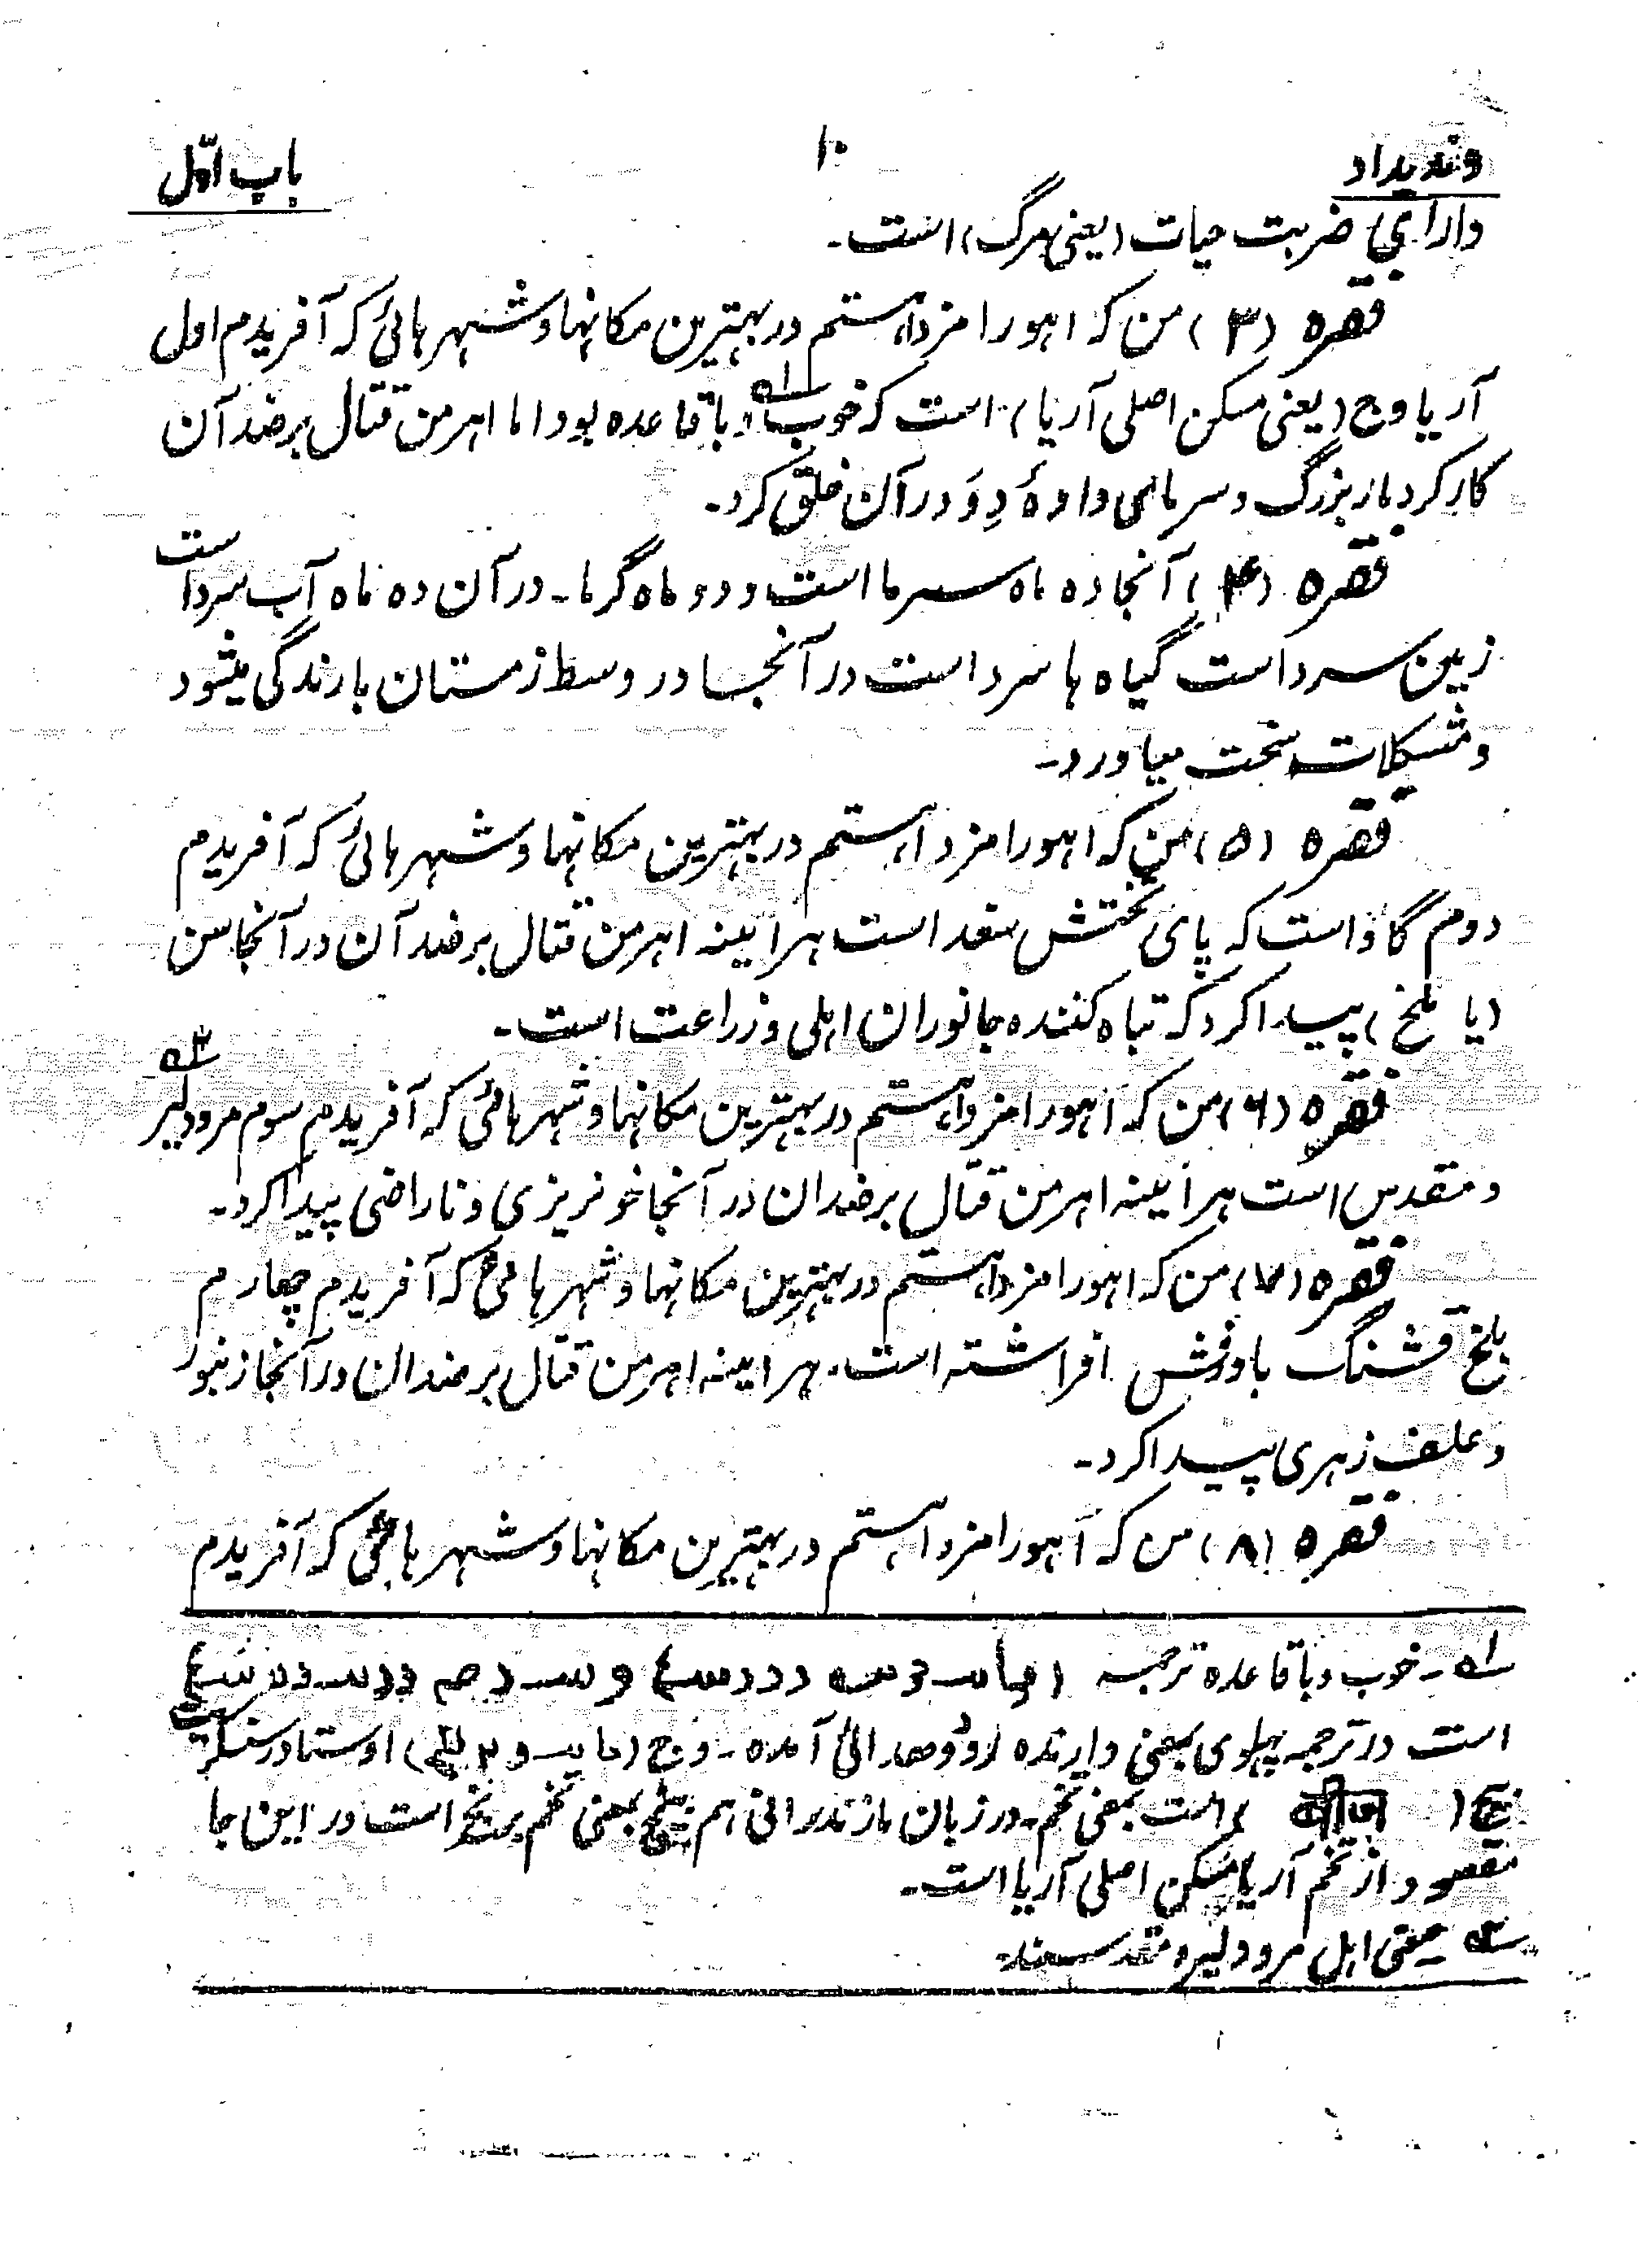 وندیداد ۱۰ باب اوّل
دارای ضربت حیات (یعنی مرگ) است۔
فقره (۳) من که اهورا مزدا هستم در بهترین مکانها و شهرهائی که آفریدم اول
آریا وج (یعنی مسکن اصلی آریا) است که خوب و با قاعده بود اما اهرمن قتال بر ضد آن
کار کرد مار بزرگ و سرمای دادهٔ دِوَ در آن خلق کرد۔
فقره (۴) آنجا ده ماه سرما است و دو ماه گرما۔ در آن ده ماه آب سرد است
زمین سرد است گیاه ها سرد است در آنجا در وسط زمستان بارندگی میشود
و مشکلات سخت میآورد۔
فقره (۵) من که اهورا مزدا هستم در بهترین مکانها و شهرهائی که آفریدم
دوم گاؤ است که پای تختش سغد است هرآیینه اهرمن قتال بر ضد آن در آنجا سن
(یا ملخ) پیدا کرد که تباه کننده جانوران اهلی و زراعت است۔
فقره (۶) من که اهورا مزدا هستم در بهترین مکانها و شهرهائی که آفریدم سوم مرو دلیر ۲
و مقدس است هرآیینه اهرمن قتال بر ضد ان در آنجا خونریزی و ناراضی پیدا کرد۔
فقره (۷) من که اهورا مزدا هستم در بهترین مکانها و شهرهائی که آفریدم چهارم
بلخ قشنگ با درفش افراشته است۔ هرآیینه اهرمن قتال بر ضد ان در آنجا زنبور
و علف زهری پیدا کرد۔
فقره (۸) من که اهورا مزدا هستم در بهترین مکانها و شهرهائی که آفریدم
۱ــ خوب و با قاعده ترجمه
است در ترجمه پهلوی بمعنی دارنده آمده۔ وج اوستا در سنسکریت
بیج (बीज) است بمعنی تخم۔ در زبان مازندرانی هم بمعنی تخم برنج است در این جا
مقصود از تخم آریا مسکن اصلی آریا است۔
یعنی اهل مرو دلیر و مقدسند۔